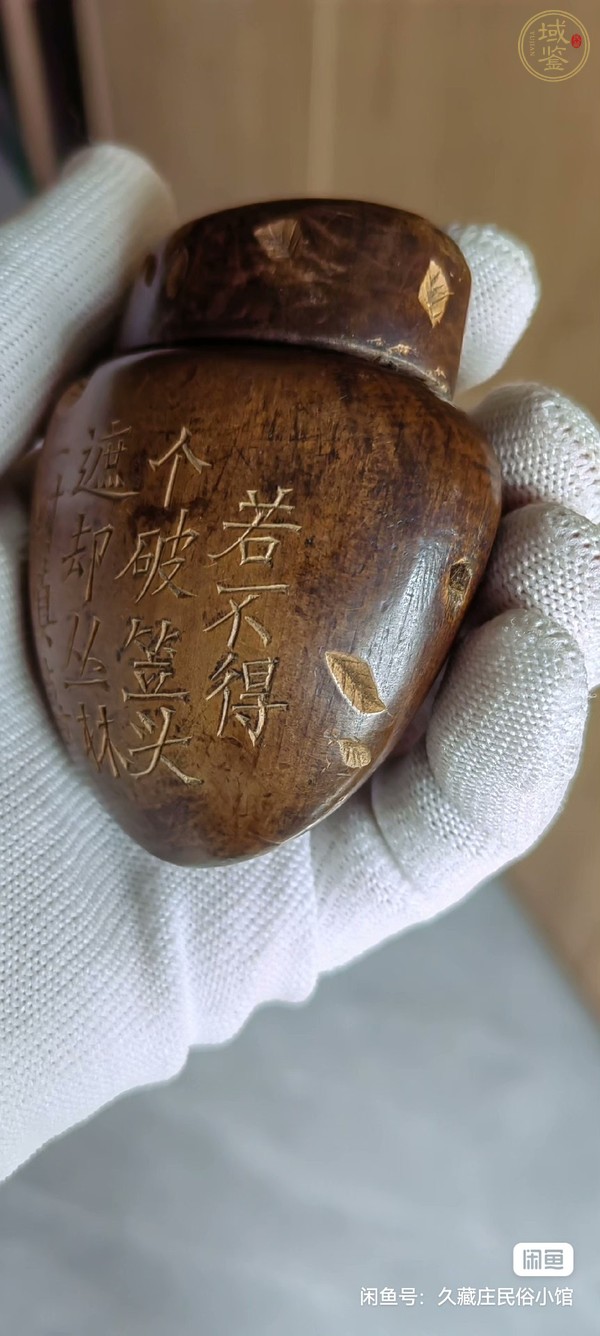 域鉴
YUJIAN
若不得
个破笠头
遮却丛林
闲鱼
闲鱼号：久藏庄民俗小馆